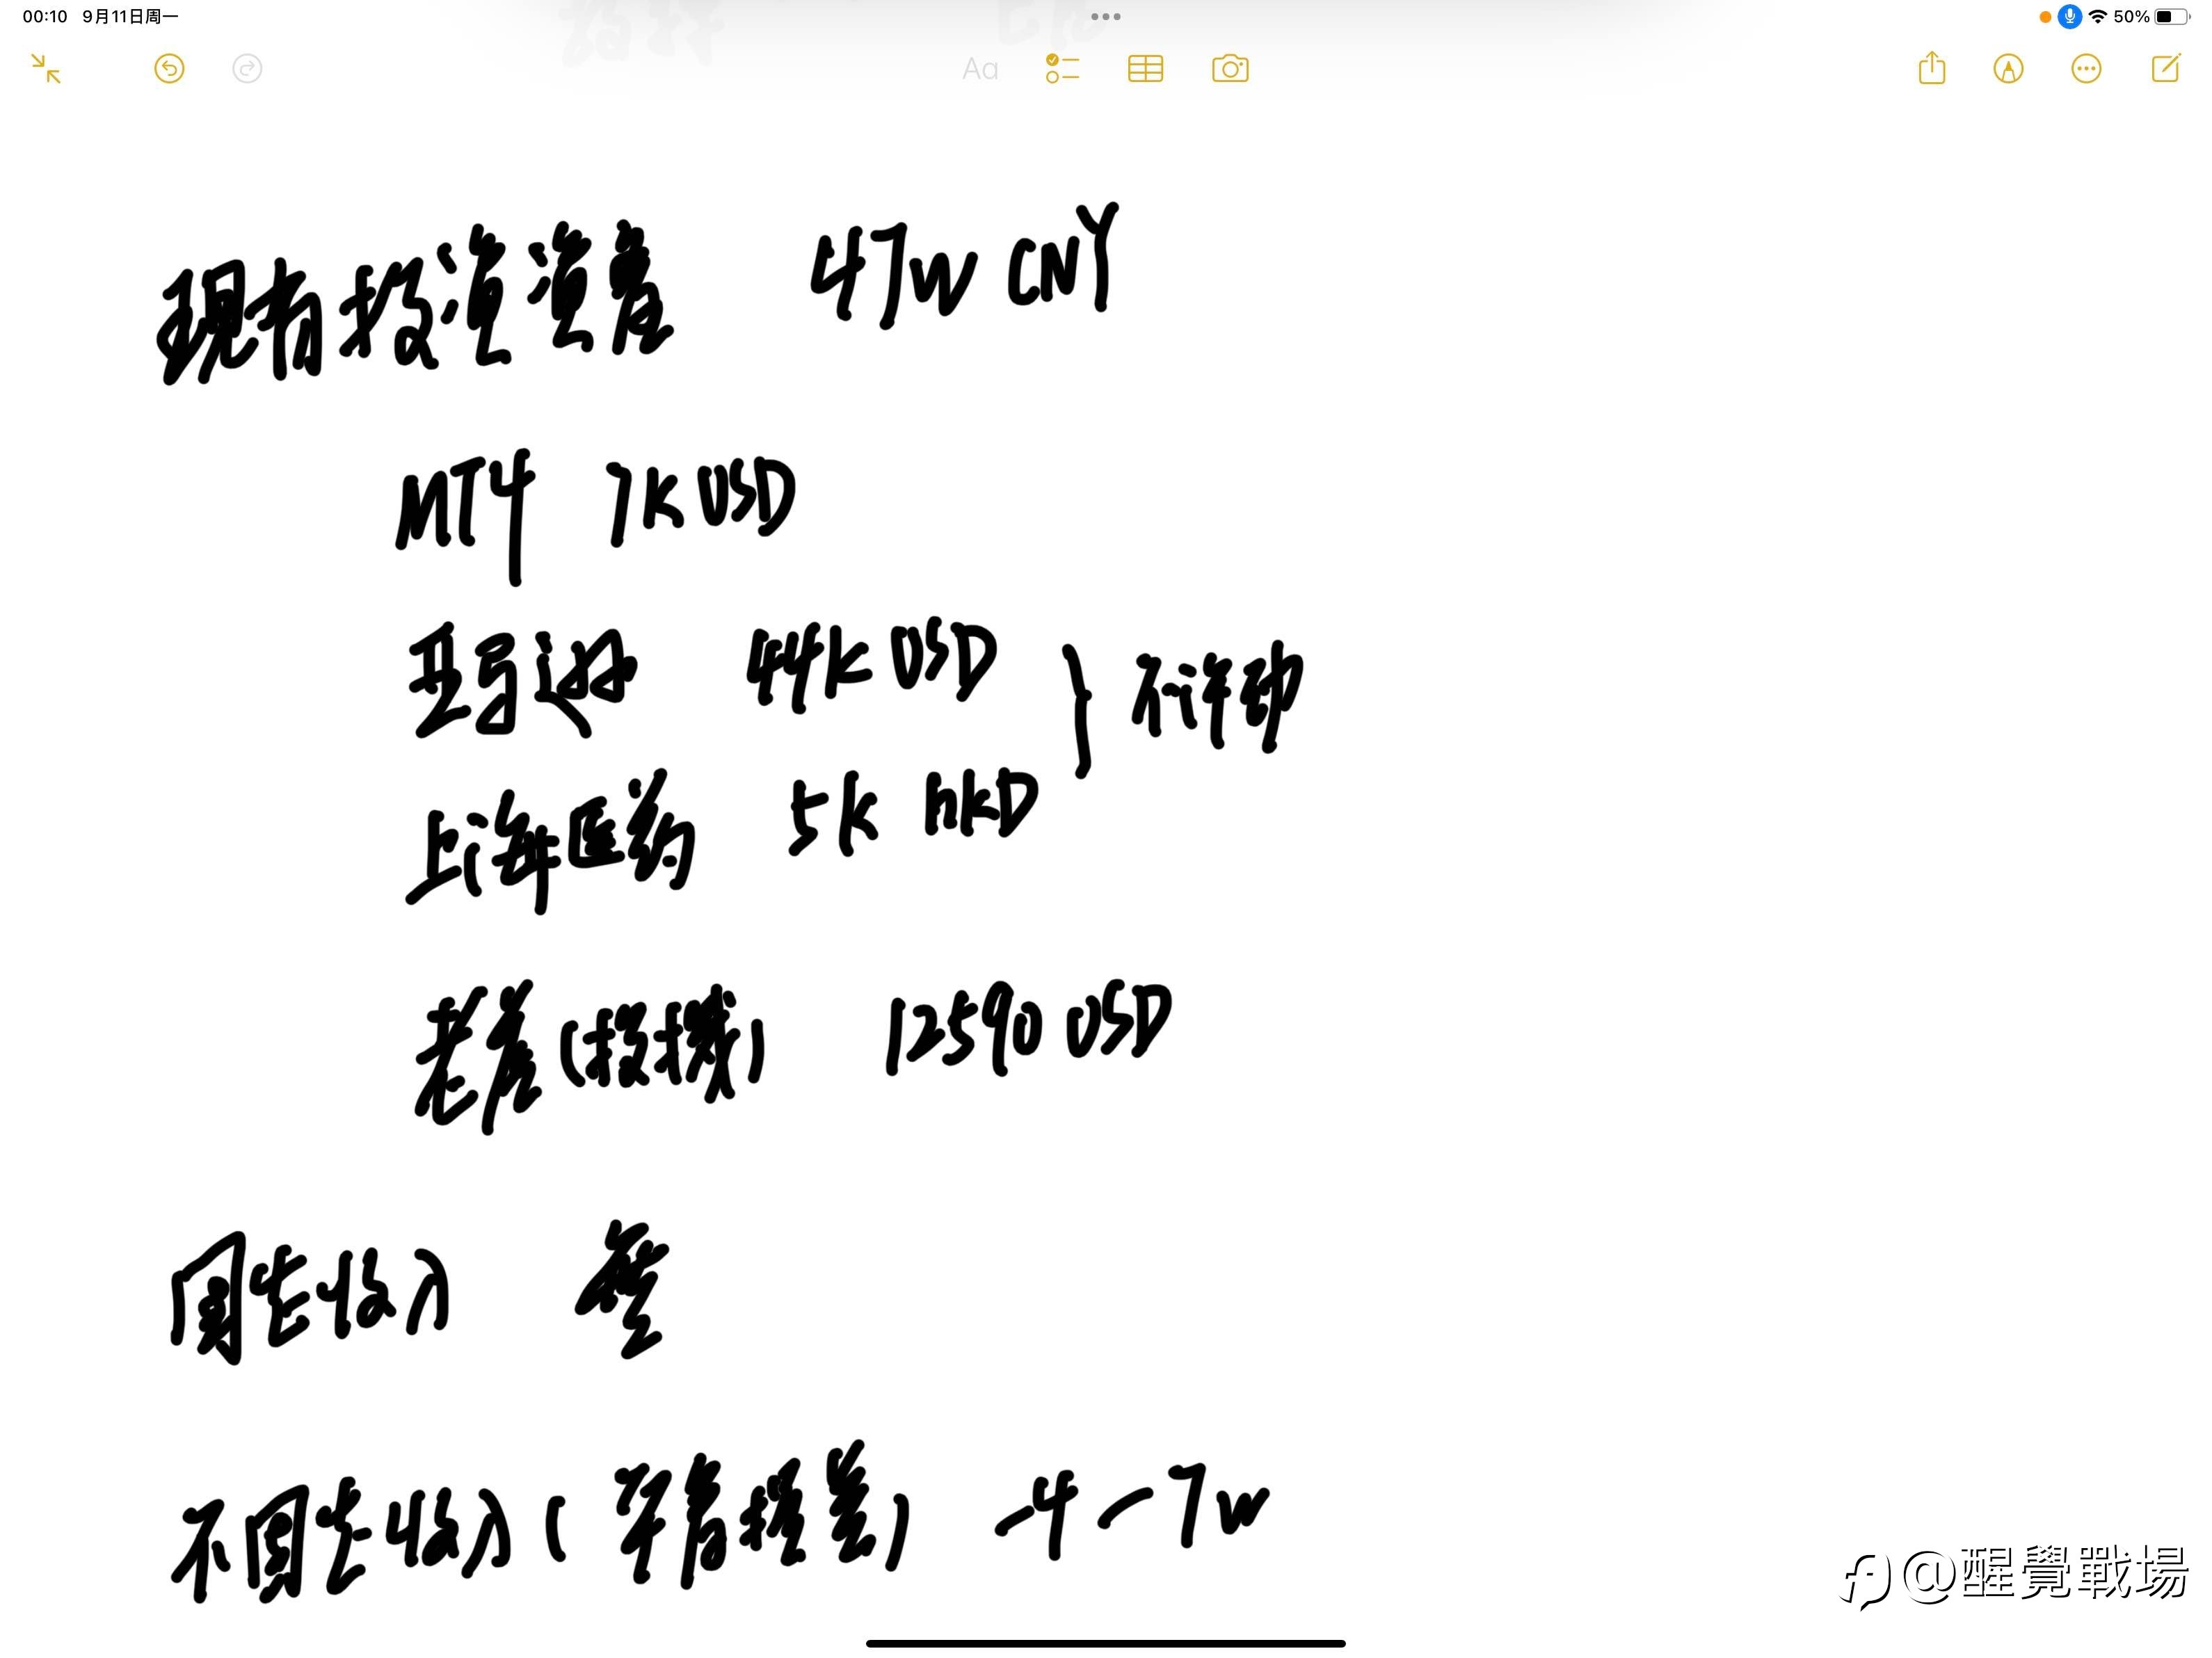 00:10 9月11日周一 50%
Aa
现有投资资产 47W CNY
MT4 7K USD
亚马逊 44K USD
不许动
上海医药 5K HKD
老虎(投機) 12590 USD
固定收入
不固定收入( -4-7W
@醒覺戰場